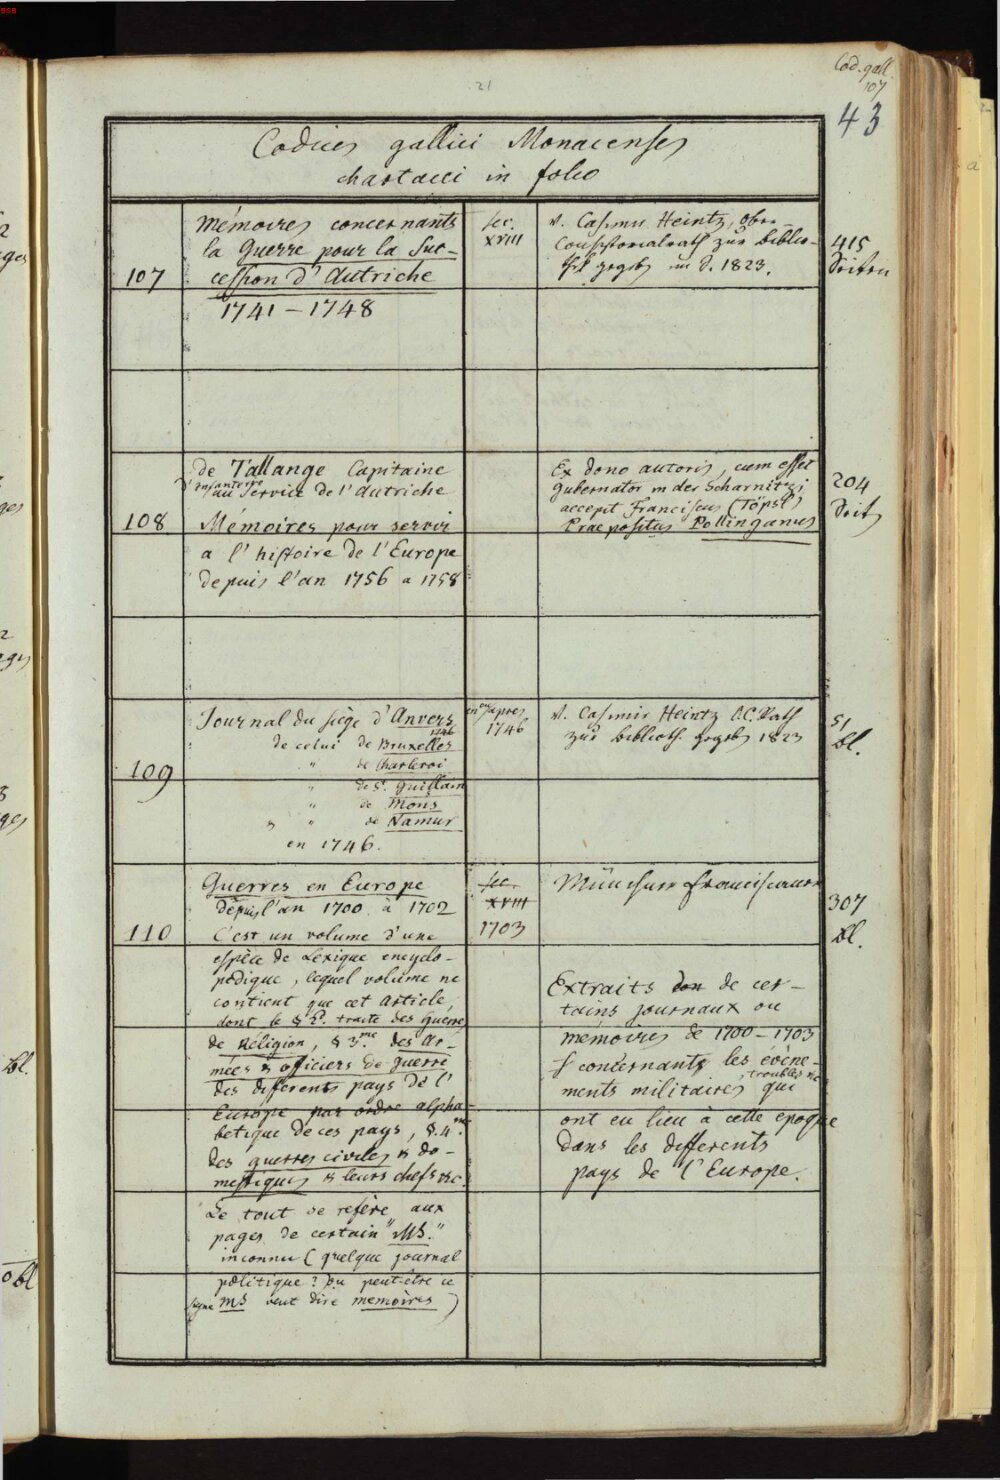 BSB
21
Cod. gall.
107
43
Codices gallici Monacenses
chartacei in folio
107
Mémoires concernants
la Guerre pour la Suc-
cession d'Autriche
1741 – 1748
sec.
XVIII
v. Casimir Heintz, Ober-
Consistorialrath zur Biblio-
thek gegeb. im J. 1823.
415
Seiten
108
de Tallange Capitaine
d'infanterie
au Service de l'Autriche
Mémoires pour servir
a l'histoire de l'Europe
depuis l'an 1756 a 1758
Ex dono autoris, cum esset
gubernator in der Scharnitz;
accepit Franciscus (Töpsl)
Praepositus Pollinganus
204
Seit
109
Journal du siège d'Anvers
1746
de celui de Bruxelles
" de Charleroi
" de St. Guillain
" de Mons
" " de Namur
en 1746.
en ou apres
1746
v. Casimir Heintz O.C. Rath
zur Biblioth. gegeb. 1823
51
bl.
110
Guerres en Europe
depuis l'an 1700 à 1702
C'est un volume d'une
espèce de Lexique encyclo-
pedique, lequel volume ne
contient que cet article,
dont le § 2. traite des Guerres
de Religion, § 3.me des Ar-
mées & officiers de guerre
des differents pays de l'
Europe par ordre alpha-
betique de ces pays, §.4.me
des guerres civiles & do-
mestiques & leurs chefs &c.
Le tout se refère aux
pages de certain "MS."
inconnu (quelque journal
politique? ou peut-être ce
signe MS veut dire memoires)
sec.
XVIII
1703
Münchner Franciscaner
Extraits de cer-
tains journaux ou
mémoires de 1700 – 1703
concernants les évène-
troubles &c
ments militaires que
ont eu lieu à cette epoque
dans les differents
pays de l'Europe.
307
bl.